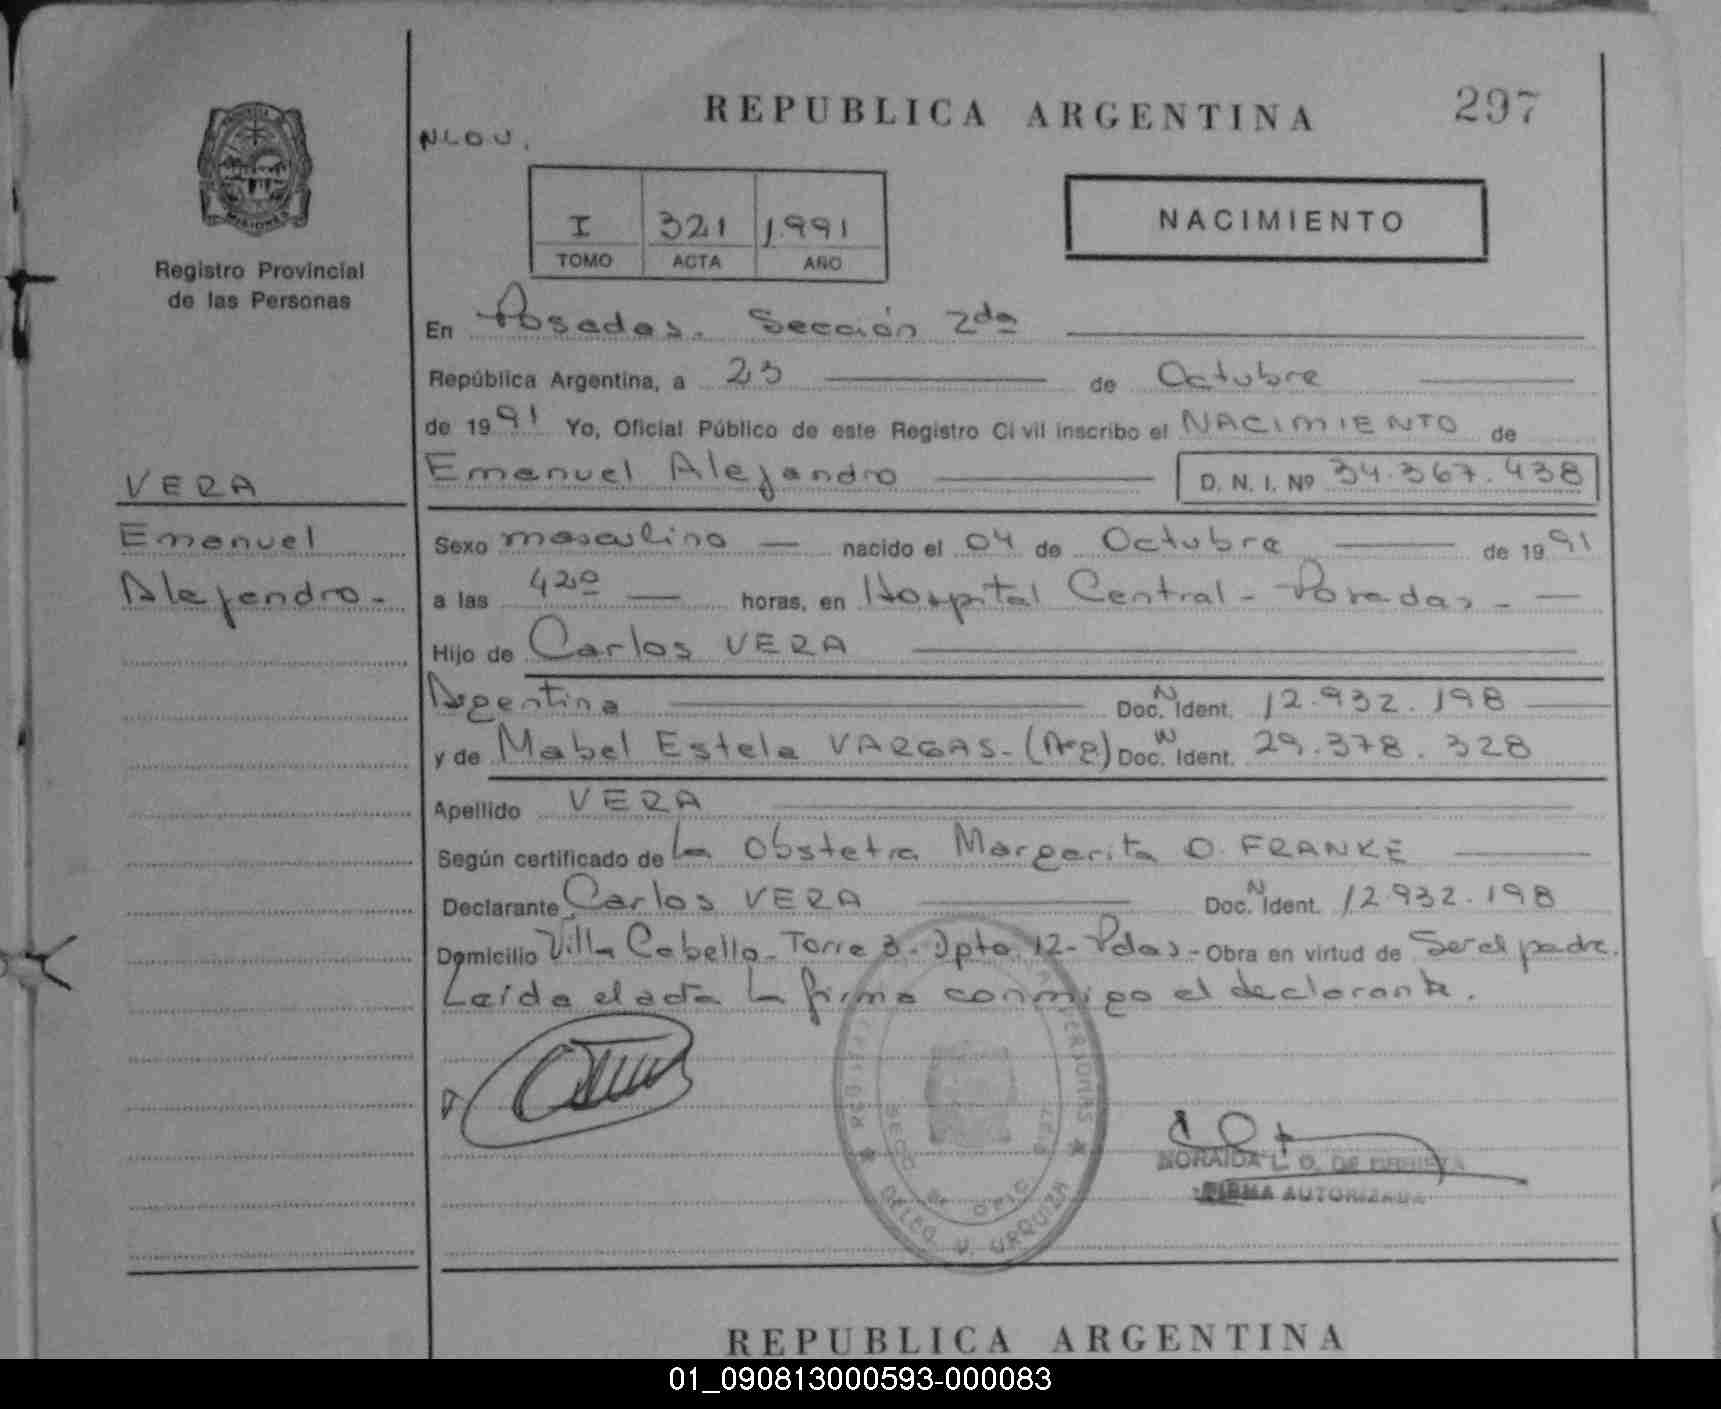 REPUBLICA ARGENTINA
297
MISIONES
Registro Provincial
de las Personas
I 321 1991
TOMO ACTA AÑO
NACIMIENTO
En Posadas. Sección 2da
República Argentina, a 23 de Octubre
de 1991 Yo, Oficial Público de este Registro Civil inscribo el NACIMIENTO de
Emanuel Alejandro D. N. I. Nº 34.367.438
VERA
Emanuel
Alejandro-
Sexo masculino nacido el 04 de Octubre de 1991
a las 420 horas, en Hospital Central - Posadas -
Hijo de Carlos VERA
Argentina Doc. N Ident. 12.932.198
y de Mabel Estela VARGAS-(Arg) Doc. N Ident. 29.378.328
Apellido VERA
Según certificado de la Obstetra Margarita O. FRANKE
Declarante Carlos VERA Doc. N Ident. 12.932.198
Domicilio Villa Cabello- Torre 3. Dpto. 12- Pdas- Obra en virtud de Ser el padre.
Leída el acta la firma conmigo el declarante.
PERSONAS
DELEG. V. URQUIZA
NORAIDA L. O. DE
FIRMA AUTORIZADA
REPUBLICA ARGENTINA
01_090813000593-000083